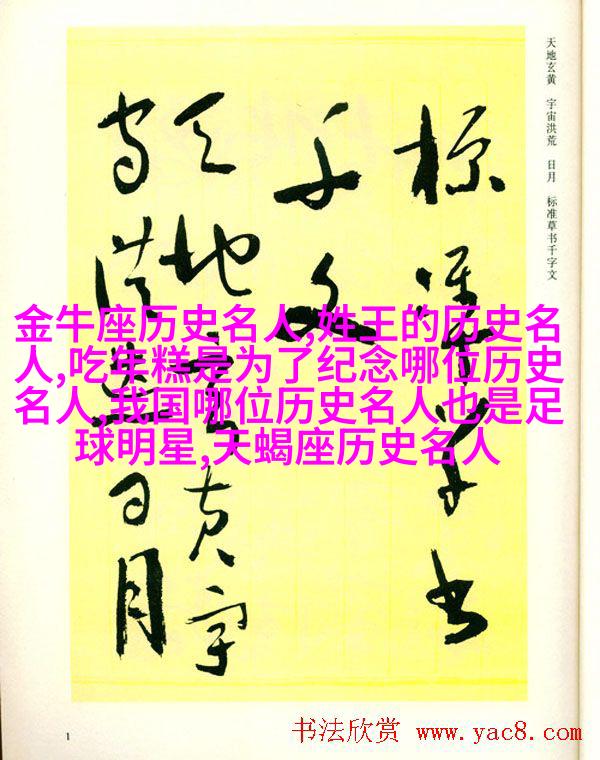 天地玄黄 宇宙洪荒 日月 标准草书千字文
標準草書
千文
天地玄黄宇
宙洪荒日月
金牛座历史名人,姓王的历史名
人,吃年糕是为了纪念哪位历史
名人,我国哪位历史名人也是足
球明星,天蝎座历史名人
1
书法欣赏 www.yac8.com